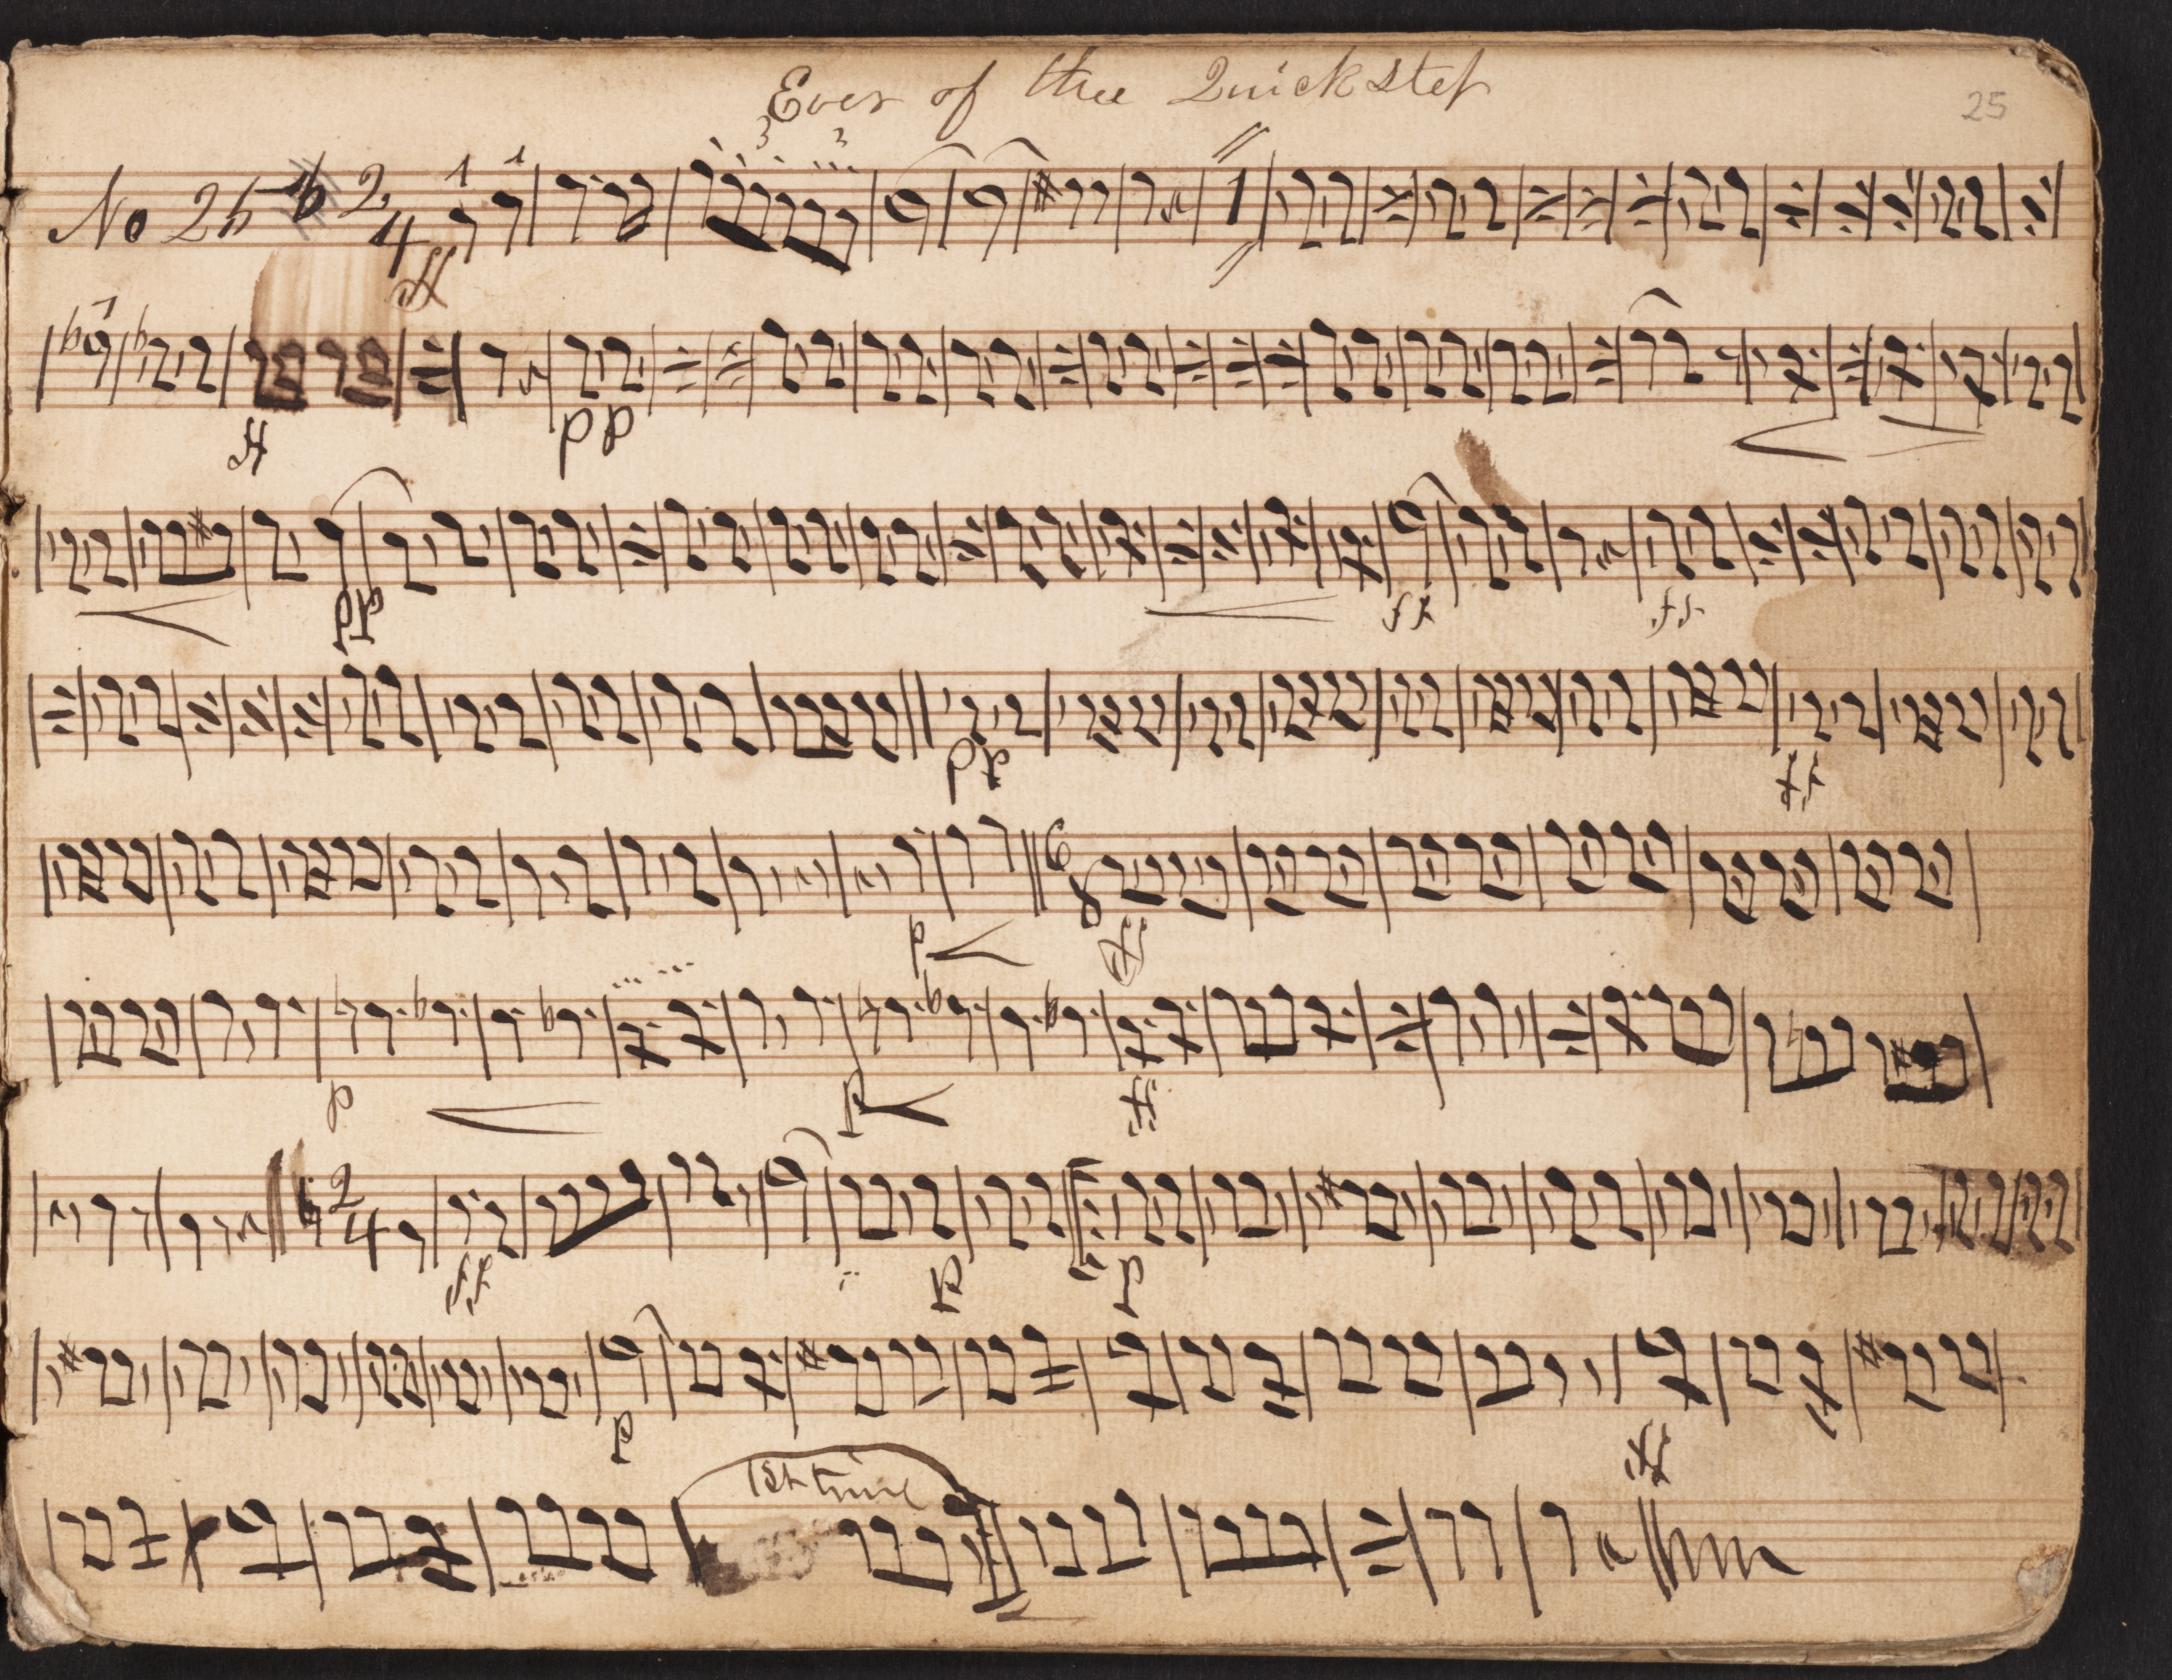 Ever of thee Quickstep
25
No 25 2/4 1 1 3 3 1
ff
ff pp
pp ff ff
pp ff
6/8
p ff
p p ff
2/4
ff p p
p ff
1st time